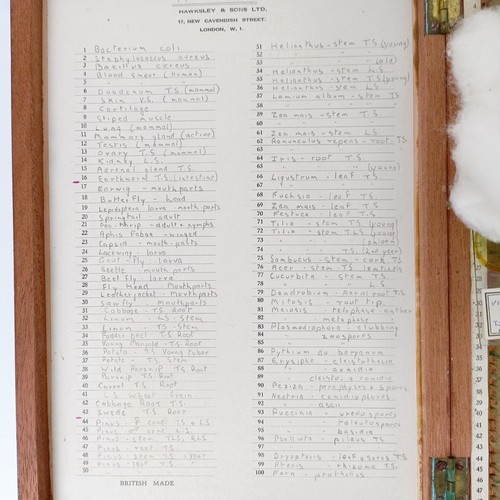 HAWKSLEY & SONS LTD.
17, NEW CAVENDISH STREET.
LONDON, W. 1.
1 Bacterium coli
2 Staphylococcus aureus
3 Bacillus cereus
4 Blood smear (Human)
5 "
6 Duodenum T.S (mammal)
7 Skin V.S. (mammal)
8 Cartilage
9 Striped muscle
10 Lung (mammal)
11 Mammary gland (active)
12 Testis (mammal)
13 Ovary T.S (mammal)
14 Kidney L.S.
15 Adrenal gland T.S
16 Earthworm T.S (intestine)
17 Earwig - mouthparts
18 Butterfly - head
19 Lepidoptera larva - mouth parts
20 Springtail - adult
21 Pea thrip - adult + nymphs
22 Aphis fabae - winged
23 Capsid - mouth parts
24 Lacewing larva
25 Gout - fly larva
26 Beetle mouth parts
27 Beet fly larva
28 Fly Head Mouthparts
29 Leatherjacket - Mouthparts
30 Sawfly Mouthparts
31 Cabbage T.S Root
32 Linum L.S Stem
33 Linum T.S - Stem
34 Fodder beet T.S Root
35 Young Mangold T.S Root
36 Potato T.S Young tuber
37 Potato T.S Stem
38 Wild Parsnip T.S Root
39 Parsnip T.S Root
40 Carrot T.S Root
41 L.S Wheat Grain
42 Cabbage Root T.S
43 Swede T.S Root
44 Pinus T.S & L.S
45 Pinus cone L.S
46 Pinus - stem
47 Pinus root T.S
48 Pinus
49 Pinus T.S
50
51 Helianthus - stem T.S (young)
52
53 " (old)
54 Helianthus - stem L.S
55 Helianthus stem T.S (young)
56 Helianthus - stem L.S
57 Lamium album - stem T.S
58
59 Zea mais - stem T.S
60
61 Zea mais - stem L.S
62 Ranunculus repens - root T.S
63
64 Iris - root T.S
65 " " (young)
66 Ligustrum - leaf T.S
67
68 Fuchsia - leaf T.S
69 Zea mais - leaf T.S
70 Festuca leaf T.S
71 Tilia - stem T.S (young)
72 Tilia - stem
73
74 " T.S (2nd year)
75 Sambucus - stem - cork T.S
76 Acer - stem T.S lenticels
77 Cucurbita - stem T.S
78 " " L.S
79 Dendrobium Aerial root T.S
80 Mitosis - root tip
81 Meiosis telophase anther
82 " metaphase
83 Plasmodiophora - clubbing
84 " zoospores
85
86 Pythium de baryanum
87 Erysiphe cleistothecia
88 " conidia
89 cleisto. & conidia
90 Peziza - paraphyses & spores
91 Nectria - conidiophores
92 " asci
93 Puccinia uredospores
94 " teleutospores
95 " basidia
96 Psalliota pileus T.S
97
98 Dryopteris leaf & sorus T.S
99 Pteris rhizome T.S
100 Fern prothallus
BRITISH MADE